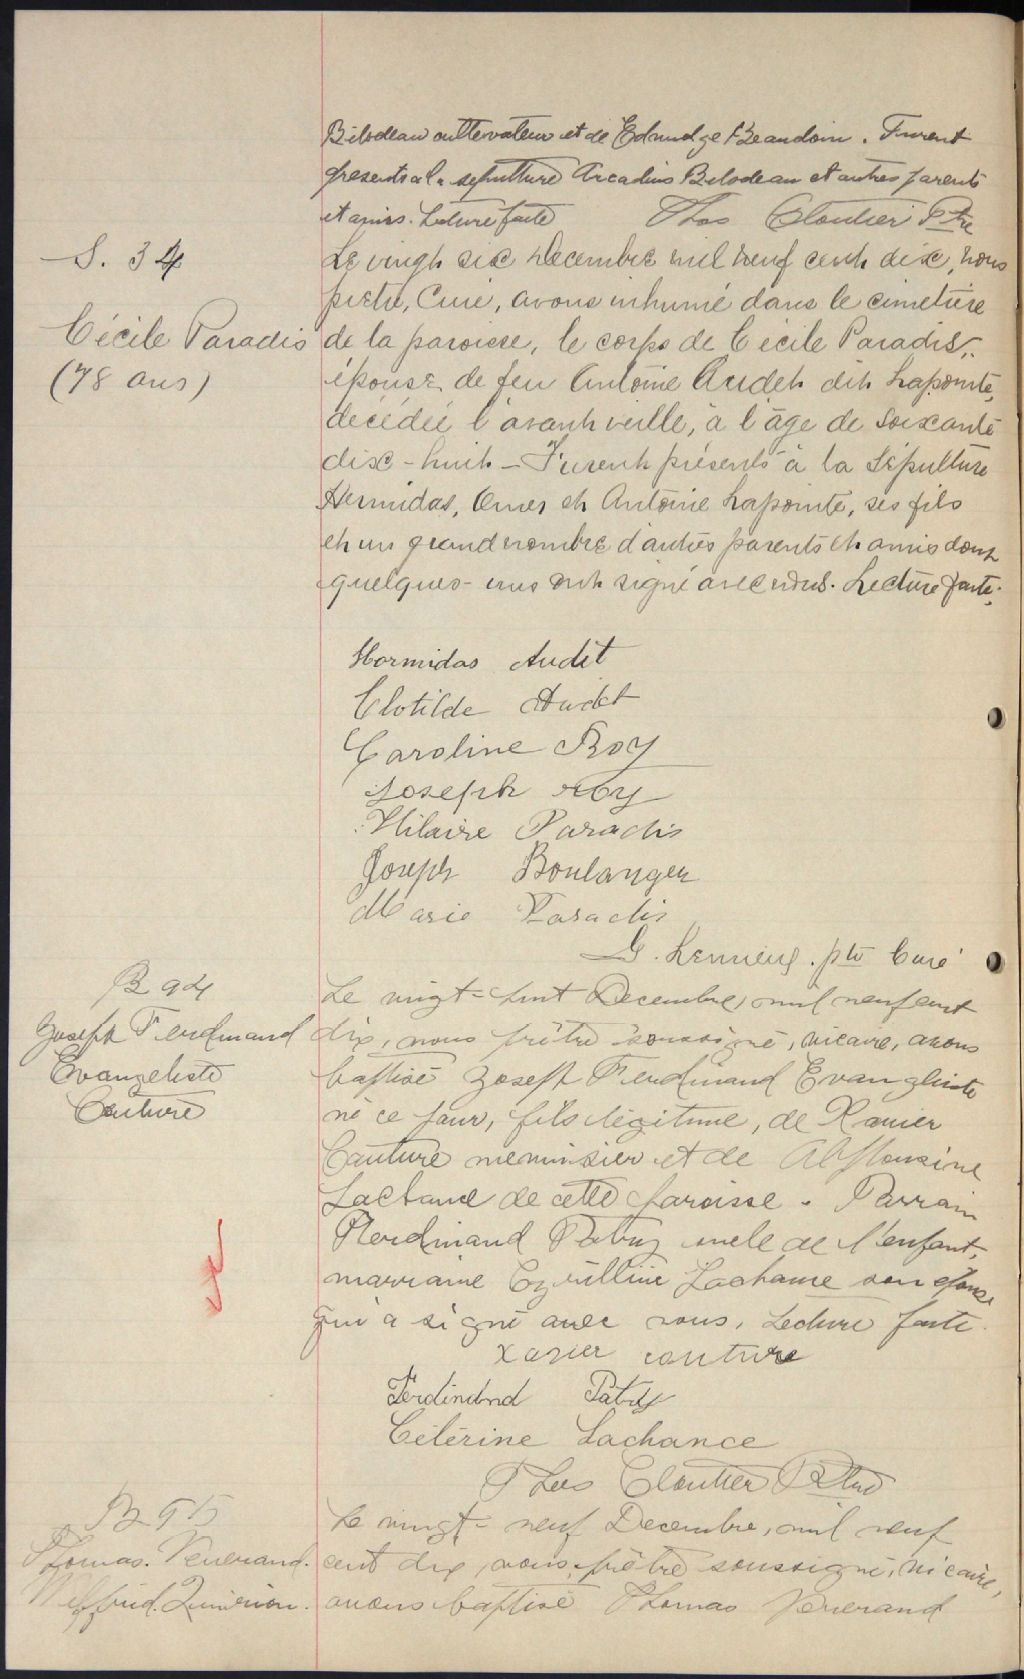 Bilodeau cultivateur et de Edmudge Beaudoin. Furent
presents a la sepulture Arcadius Belodeau et autres parents
et amis. Lecture faite Thos Cloutier Ptre
S. 34
Le vingt six Decembre mil neuf cent dix, nous
prêtre, Curé, avons inhumé dans le cimetière
Cécile Paradis
(78 ans)
de la paroisse, le corps de Cécile Paradis,
épouse de feu Antoine Audet dit Lapointe,
décédée l'avant veille, à l'âge de soixante
dix-huit - Furent présents à la Sépulture
Hermidas, Omer et Antoine Lapointe, ses fils
et un grand nombre d'autres parents et amis dont
quelques-uns ont signé avec nous. Lecture faite.
Hormidas Audet
Clotilde Audet
Caroline Roy
Joseph Roy
Hilaire Paradis
Joseph Boulanger
Marie Paradis
G. Lemieux. ptre Curé
B 94
Joseph Ferdinand
Evangeliste
Couture
Le vingt-huit Decembre, mil neuf cent
dix, nous prêtre soussigné, vicaire, avons
baptisé Joseph Ferdinand Evangeliste
né ce jour, fils légitime, de Xavier
Couture menuisier et de Alphonsine
Lachance de cette paroisse. Parrain
Ferdinand Patry oncle de l'enfant,
marraine Lachance son épouse
qui a signé avec nous, Lecture faite.
Xavier Couture
Ferdinand Patry
Célérine Lachance
Thos Cloutier Ptre
B 95
Thomas. Venerand.
Wilfrid.
Le vingt-neuf Decembre, mil neuf
cent dix, nous, prêtre soussigné, vicaire,
avons baptisé Thomas Venerand